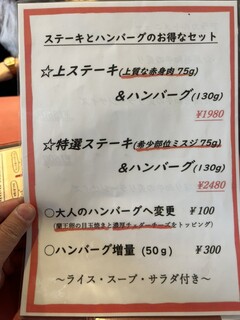 ステーキとハンバーグのお得なセット
☆上ステーキ(上質な赤身肉 75g)
&ハンバーグ(130g)
¥1980
☆特選ステーキ(希少部位ミスジ 75g)
&ハンバーグ(130g)
¥2480
○大人のハンバーグへ変更 ¥100
(蘭王卵の目玉焼きと濃厚チェダーチーズをトッピング)
○ハンバーグ増量(50g) ¥300
～ライス・スープ・サラダ付き～